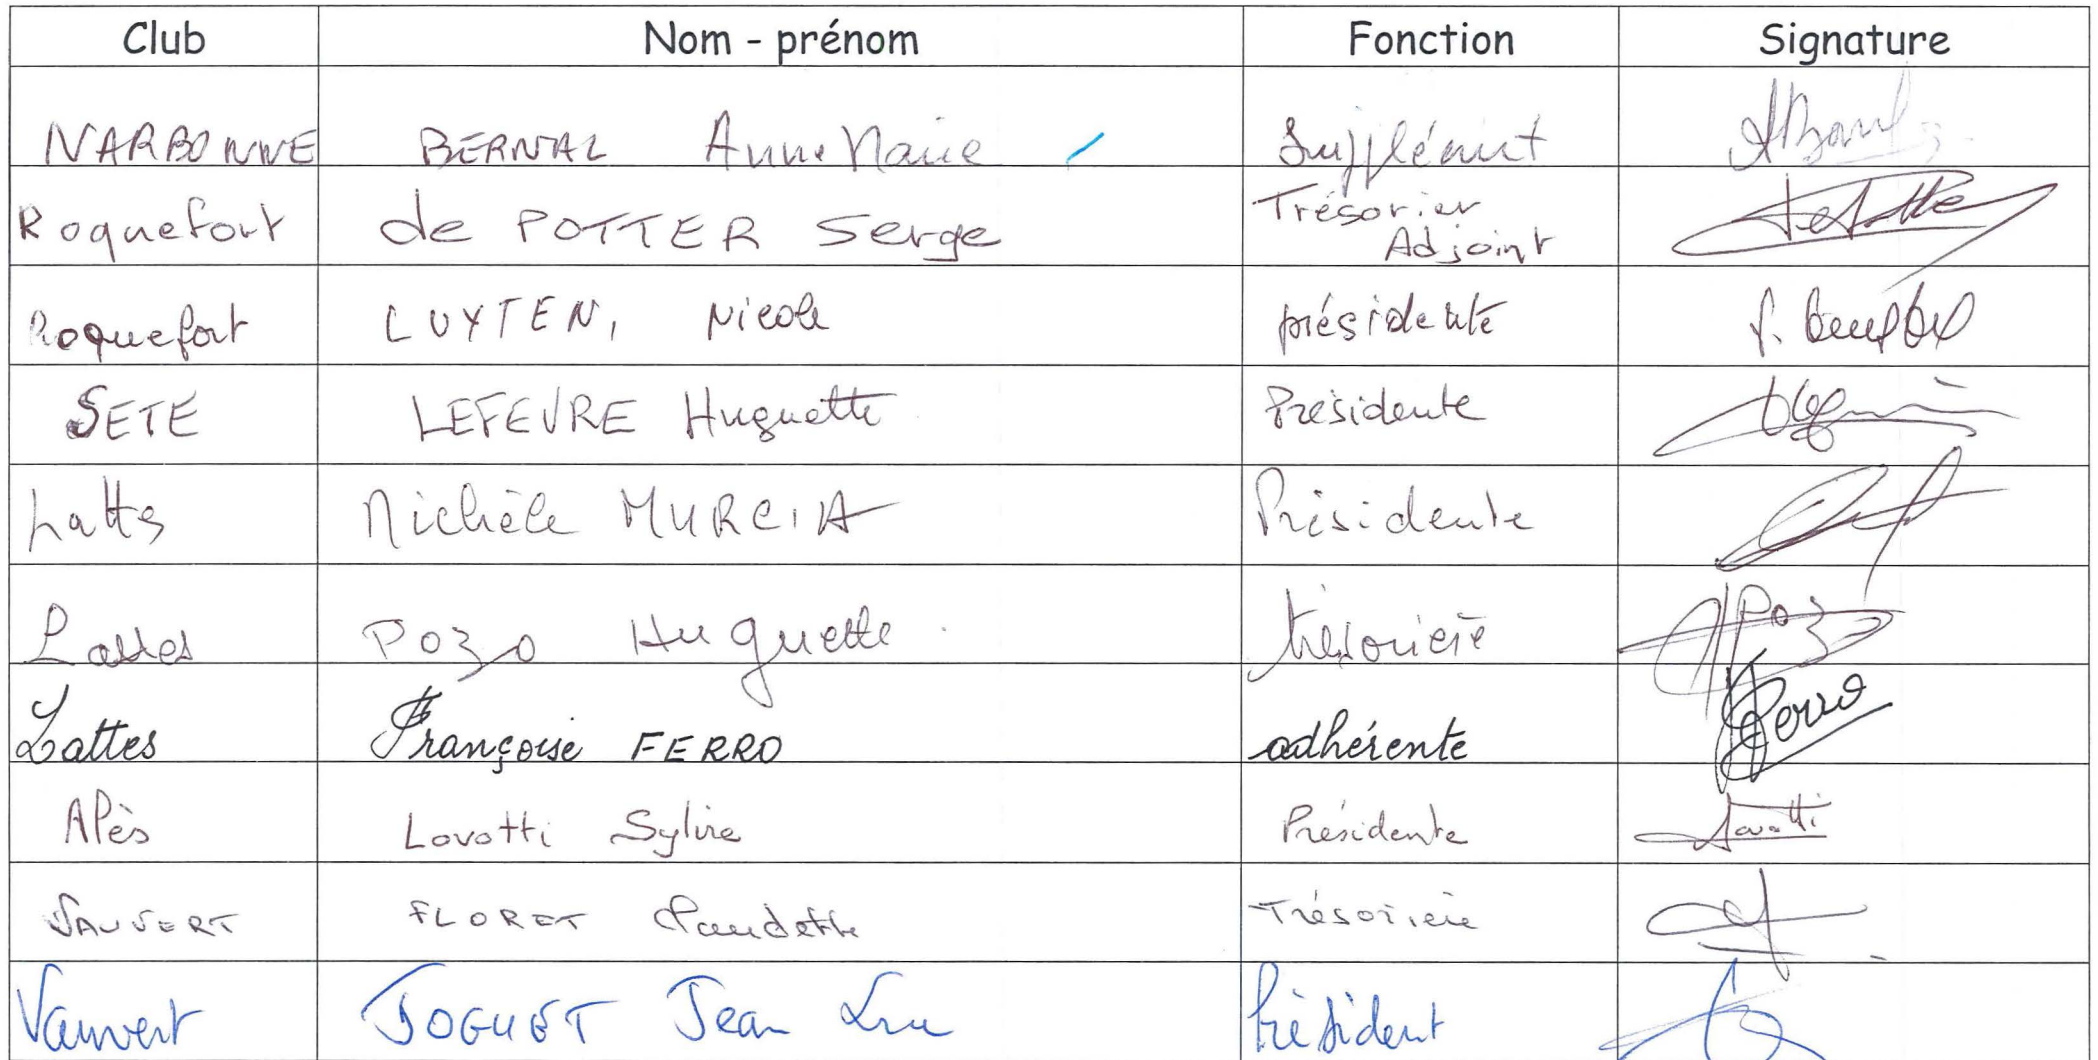 Club Nom - prénom Fonction Signature
NARBONNE BERNAL Anne Marie Suppléant
Roquefort de POTTER Serge Trésorier
Adjoint
Roquefort LUYTEN, Nicole présidente
SETE LEFEVRE Huguette Présidente
Lattes Michèle MURCIA Présidente
Lattes POZO Huguette trésorière Pozo
Lattes Françoise FERRO adhérente Ferro
Alès Lovotti Sylvie Présidente Lovotti
VAUVERT FLORET Claudette Trésorière
Vauvert JOGUET Jean Luc Président